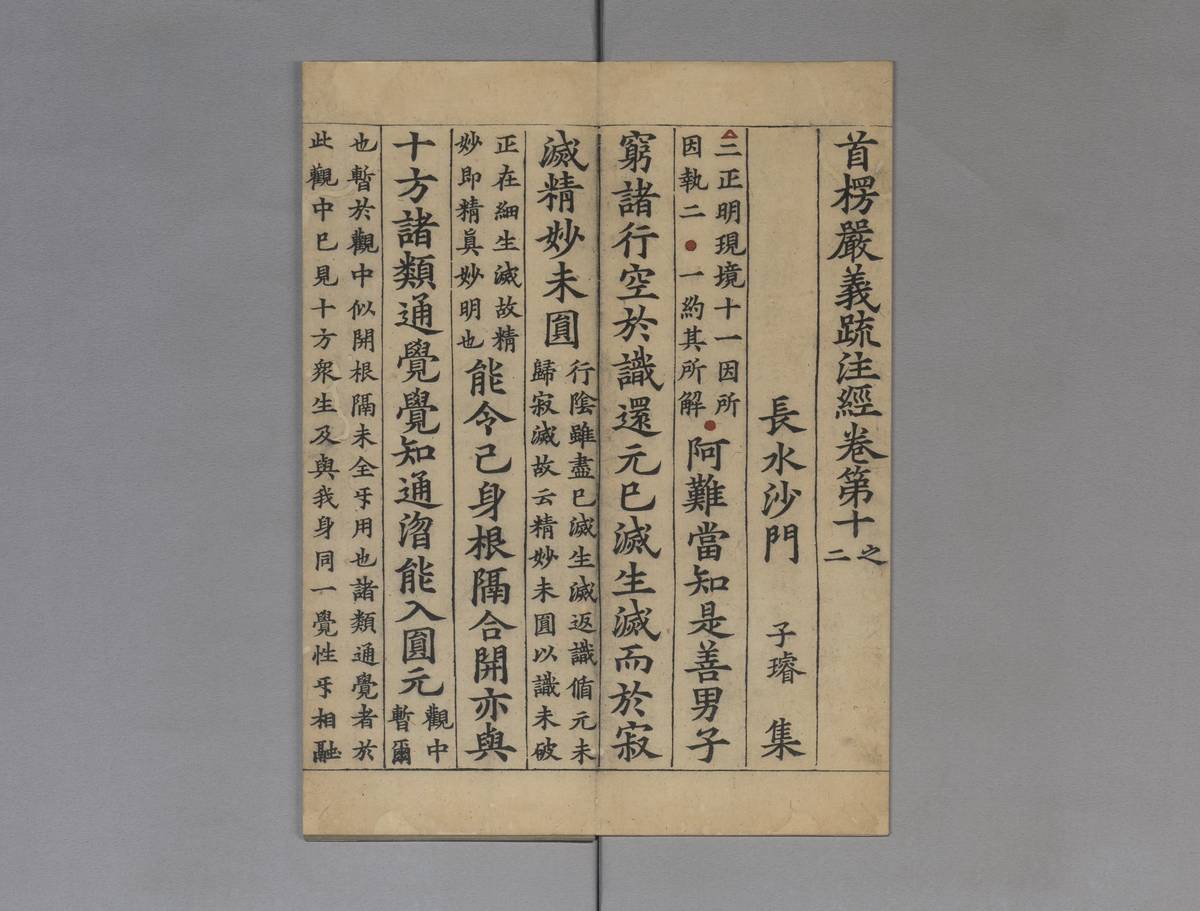 首楞嚴義疏注經卷第十之二
長水沙門 子璿 集
三正明現境十一因所
因執二一約其所解
阿難當知是善男子
窮諸行空於識還元已滅生滅而於寂
滅精妙未圓
行陰雖盡已滅生滅返識循元未
歸寂滅故云精妙未圓以識未破
正在細生滅故精
妙即精真妙明也
能令己身根隔合開亦與
十方諸類通覺覺知通㳷能入圓元
觀中
暫爾
也暫於觀中似開根隔未全㸦用也諸類通覺者於
此觀中已見十方衆生及與我身同一覺性㸦相融